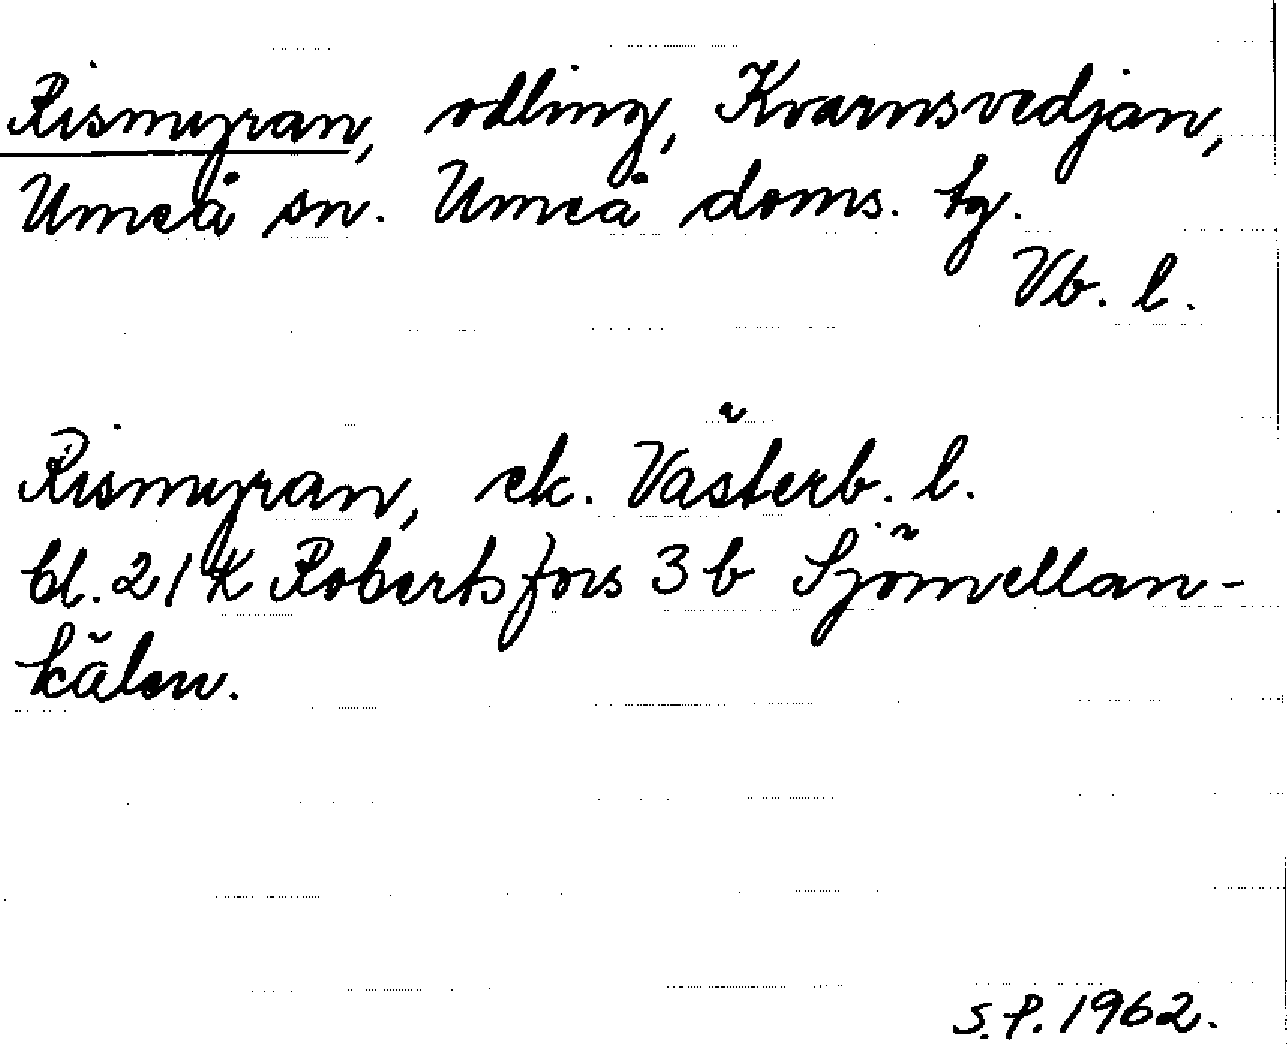 Rismyran, odling, Kvarnsvedjan,
Umeå sn. Umeå doms. tg.
Vb. l.
Rismyran, ek. Västerb. l.
bl. 21K Robertsfors 3 b Sjömellan-
kälen.
S.P. 1962.